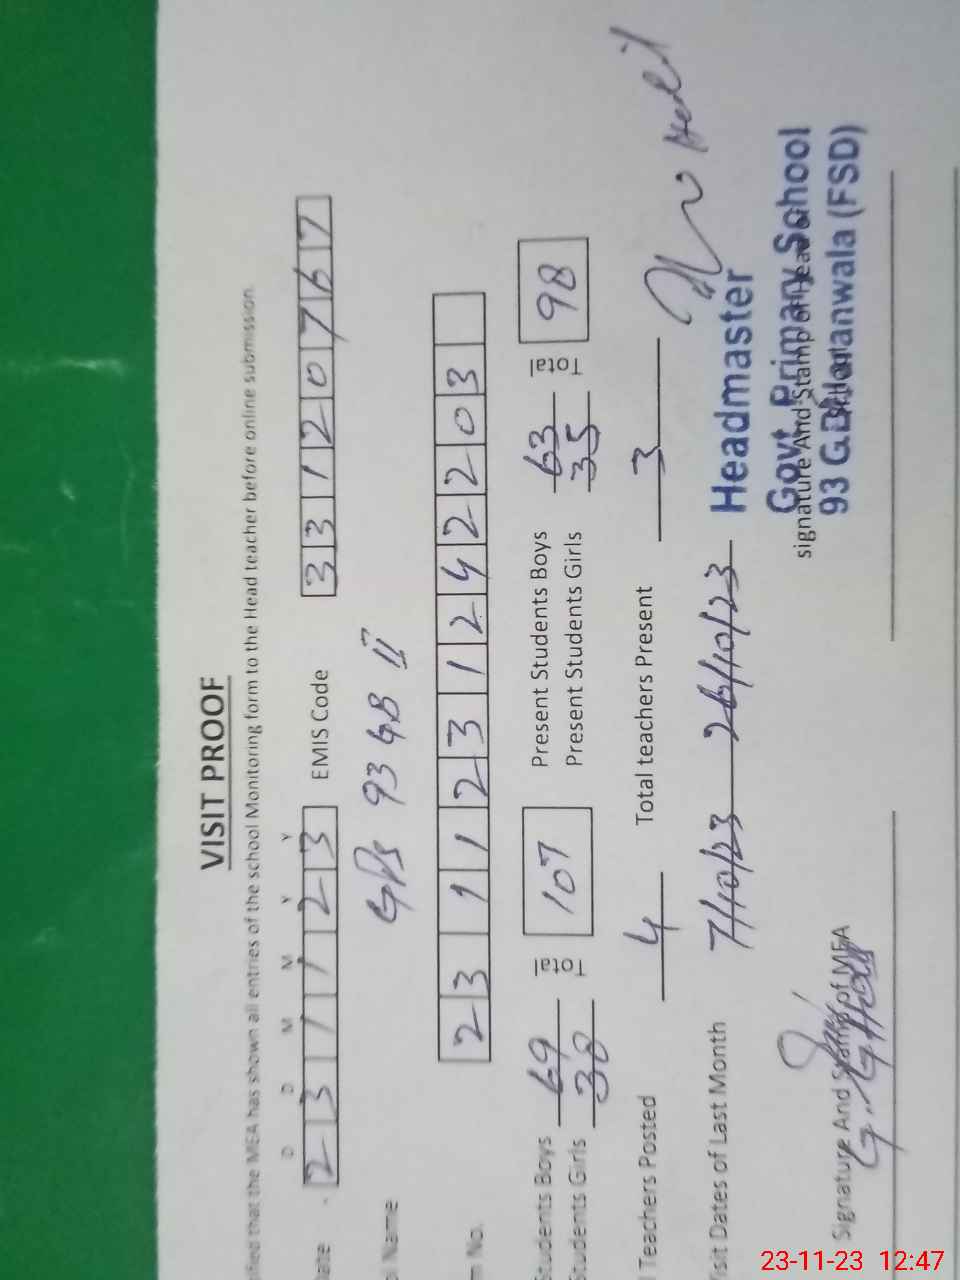 VISIT PROOF
tified that the MEA has shown all entries of the school Monitoring form to the Head teacher before online submission.
D D M M Y Y
Date 2 3 1 1 2 3 EMIS Code 3 3 1 2 0 7 6 7
ol Name GPS 93 GB II
m No. 2 3 1 1 2 3 1 2 4 2 2 0 3
Students Boys 69 Total 107 Present Students Boys 63 Total 98
Students Girls 38 Present Students Girls 35
l Teachers Posted 4 Total teachers Present 3
Visit Dates of Last Month 7/10/23 26/10/23
Headmaster
Govt. Primary School
93 G.B. Jaranwala (FSD)
Signature And Stamp of MEA signature And Stamp of Head of School
23-11-23 12:47